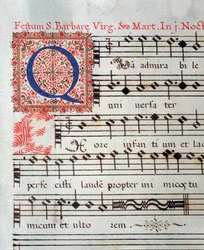 Festum S. Barbarę Virg. & Mart. In j. Noct
Q uā admira bi le
uni versa ter
E x ore infan ti um et lac
perfe cisti laudē propter ini micoς tu
micum et ulto rem.